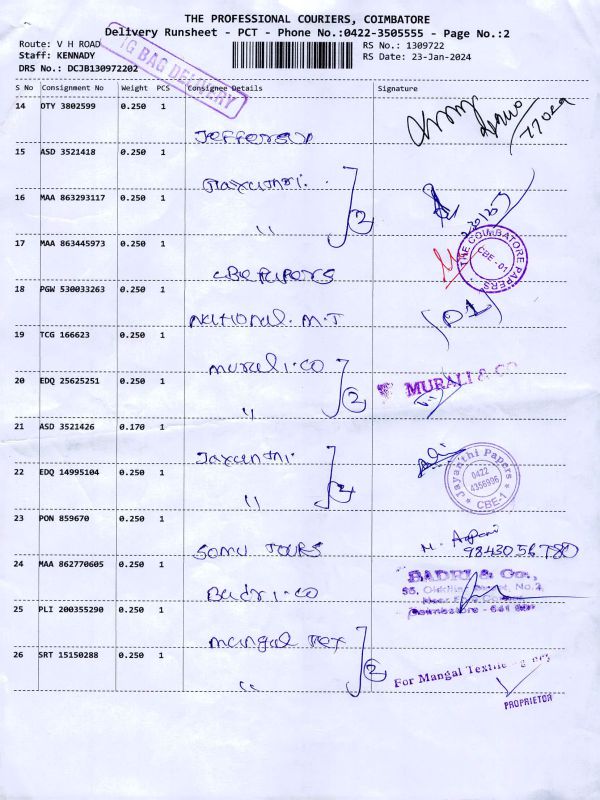 THE PROFESSIONAL COURIERS, COIMBATORE
Delivery Runsheet - PCT - Phone No.:0422-3505555 - Page No.:2
Route: V H ROAD
RS No.: 1309722
Staff: KENNADY
RS Date: 23-Jan-2024
DRS No.: DCJB130972202
BAG DELIVERY
S No Consignment No Weight PCS Consignee Details Signature
14 DTY 3802599 0.250 1
Jefferson
15 ASD 3521418 0.250 1
16 MAA 863293117 0.250 1
2
"
17 MAA 863445973 0.250 1
THE COIMBATORE PAPERS
CBE - 01
CBE PAPERS
18 PGW 530033263 0.250 1
National. M.T
19 TCG 166623 0.250 1
Murali.co
20 EDQ 25625251 0.250 1
2
MURALI & CO
"
21 ASD 3521426 0.170 1
Jayanthi
22 EDQ 14995104 0.250 1
2
Jayanthi Papers
0422
4356996
CBE-1
"
23 PON 859670 0.250 1
SOMU TOURS
9843056780
24 MAA 862770605 0.250 1
Badri.co
BADRI & Co.,
25 PLI 200355290 0.250 1
Coimbatore - 641 001
Mangal Tex
26 SRT 15150288 0.250 1
2
For Mangal Textile
"
PROPRIETOR